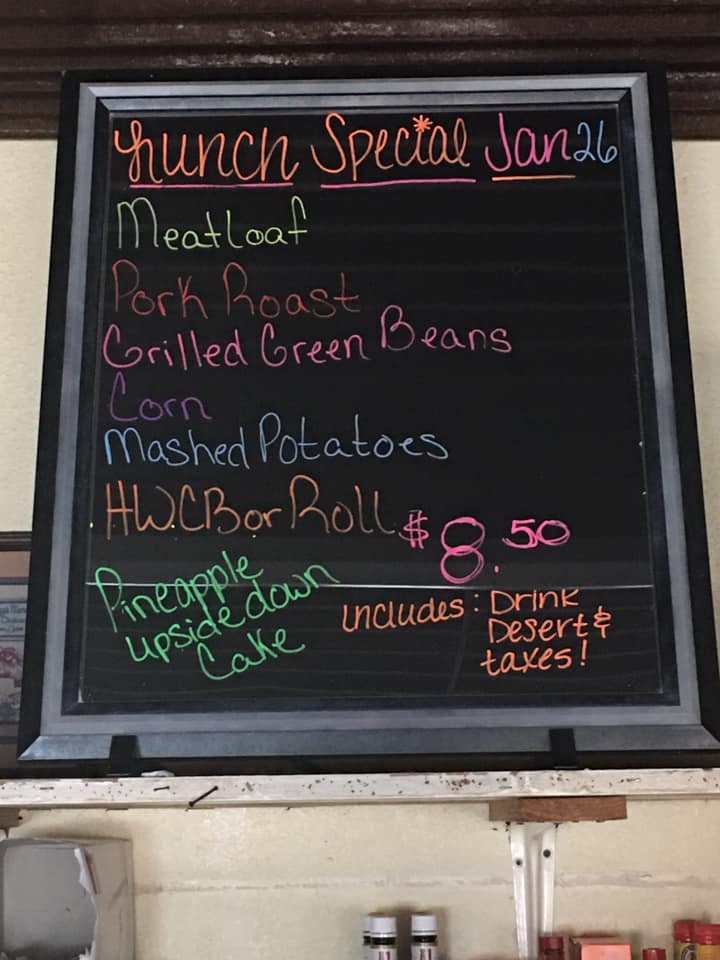 Lunch Special Jan 26
Meatloaf
Pork Roast
Grilled Green Beans
Corn
Mashed Potatoes
HWCB or Roll
$8.50
Pineapple
upsidedown
Cake
includes: Drink
Desert &
taxes!